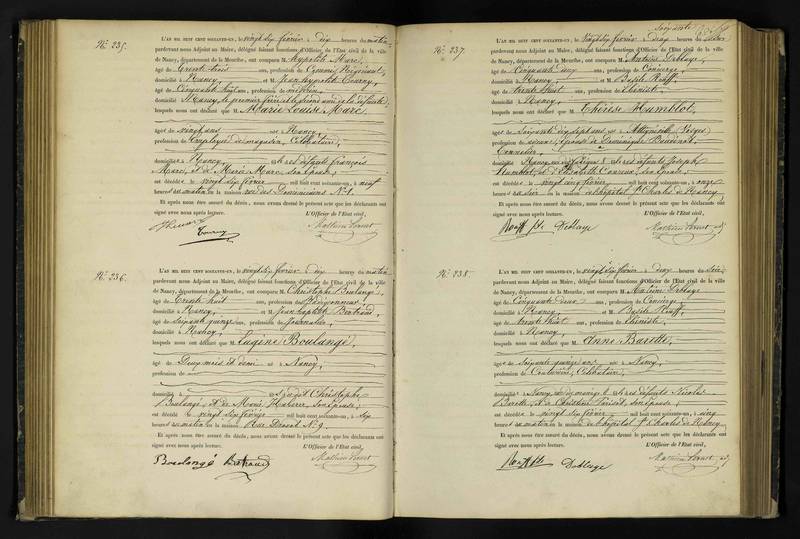 N° 235.
L'AN MIL HUIT CENT SOIXANTE-UN, le vingt six février à dix heures du matin
pardevant nous Adjoint au Maire, délégué faisant fonctions d'Officier de l'Etat civil de la ville
de Nancy, département de la Meurthe, ont comparu M. Hypolite Marc,
âgé de Trente trois ans, profession de Commis Négociant,
domicilié à Nancy, et M. Jean Hypolite
âgé de Cinquante huit ans, profession de médecin,
domicilié Nancy, le premier frère et le second ami de la défunte
lesquels nous ont déclaré que M. Marie Louise Marc,
âgée de vingt ans née à Nancy,
profession de Employée de magasin, Célibataire,
domiciliée à Nancy, défunts François
Marc, & de Marie Marc, son épouse;
est décédée le vingt six février mil huit cent soixante-un, à neuf
heures du matin en la maison rue des Dominicains N° 1.
Et après nous être assuré du décès, nous avons dressé le présent acte que les déclarants ont
signé avec nous après lecture. L'Officier de l'Etat civil,
N° 236.
L'AN MIL HUIT CENT SOIXANTE-UN, le vingt six février à dix heures du matin
pardevant nous Adjoint au Maire, délégué faisant fonctions d'Officier de l'Etat civil de la ville
de Nancy, département de la Meurthe, ont comparu M. Christophe Boulangé,
âgé de Trente huit ans, profession de
domicilié à Nancy, et M. Jean Baptiste Bertrand,
âgé de soixante quinze ans, profession de Journalier,
domicilié à Nancy,
lesquels nous ont déclaré que M. Eugène Boulangé,
âgé de Deux mois et demi né à Nancy,
profession de
domicilié à fils du dit Christophe
Boulangé, & de Marie son épouse;
est décédé le vingt six février mil huit cent soixante-un, à six
heures du matin en la maison Rue N° 9.
Et après nous être assuré du décès, nous avons dressé le présent acte que les déclarants ont
signé avec nous après lecture. L'Officier de l'Etat civil,
Boulangé Bertrand
Soixante
N° 237.
L'AN MIL HUIT CENT SOIXANTE-UN, le vingt six février à deux heures du
pardevant nous Adjoint au Maire, délégué faisant fonctions d'Officier de l'Etat civil de la ville
de Nancy, département de la Meurthe, ont comparu M. Deblaye,
âgé de Cinquante deux ans, profession de Concierge,
domicilié à Nancy, et M. Basile Rouff,
âgé de trente huit ans, profession de
domicilié à Nancy,
lesquels nous ont déclaré que M. Thérèse Humblot,
âgée de Soixante dix sept ans née à Vosges,
profession de épouse de Dominique
Tonnelier,
domiciliée Nancy défunts Joseph
Humblot, & d'Elisabeth son épouse;
est décédée le vingt cinq février mil huit cent soixante-un, à onze
heures du soir en la maison de l'hôpital St Charles de Nancy,
Et après nous être assuré du décès, nous avons dressé le présent acte que les déclarants ont
signé avec nous après lecture. L'Officier de l'Etat civil,
Rouff Deblaye
N° 238.
L'AN MIL HUIT CENT SOIXANTE-UN, le vingt six février à deux heures du
pardevant nous Adjoint au Maire, délégué faisant fonctions d'Officier de l'Etat civil de la ville
de Nancy, département de la Meurthe, ont comparu M. Deblaye,
âgé de Cinquante deux ans, profession de Concierge,
domicilié à Nancy, et M. Basile Rouff,
âgé de trente huit ans, profession de
domicilié à Nancy,
lesquels nous ont déclaré que M. Anne Barette,
âgée de Soixante quinze ans née à Nancy,
profession de Couturière, Célibataire,
domiciliée à Nancy défunts Nicolas
Barette, & de Christine son épouse;
est décédée le vingt six février mil huit cent soixante-un, à cinq
heures du matin en la maison de l'hôpital St Charles de Nancy,
Et après nous être assuré du décès, nous avons dressé le présent acte que les déclarants ont
signé avec nous après lecture. L'Officier de l'Etat civil,
Rouff Deblaye